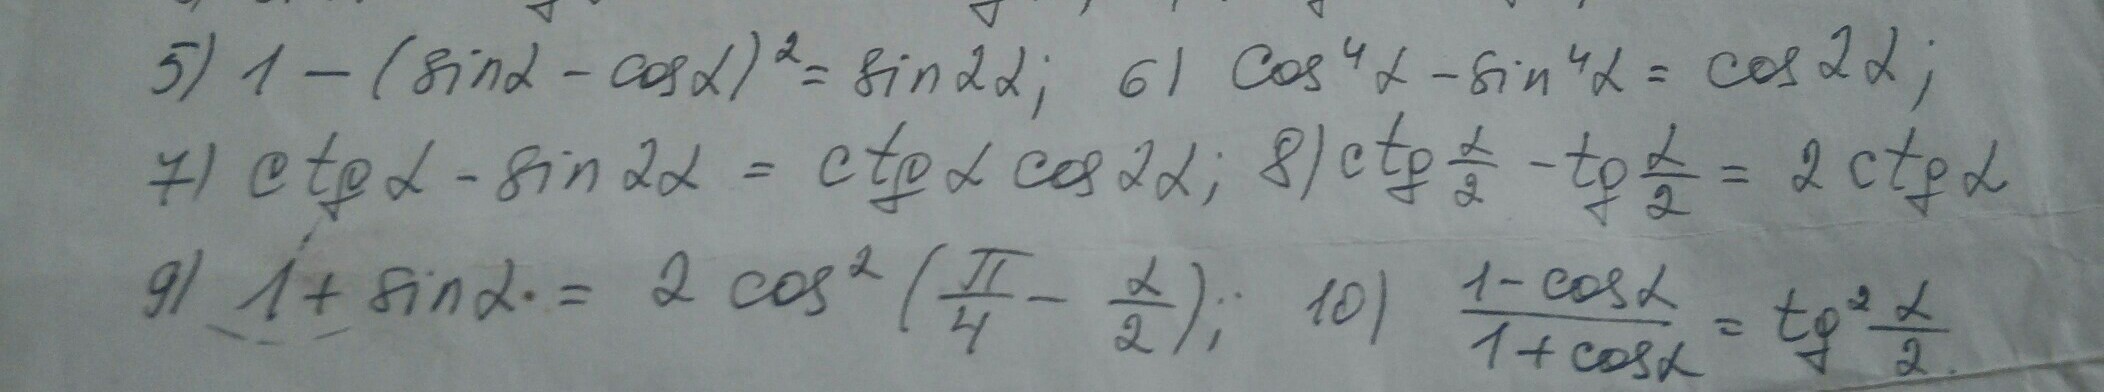 5) 1 – (sinα – cosα)² = sin2α; 6) cos⁴α – sin⁴α = cos2α;
7) ctgα – sin2α = ctgα cos2α; 8) ctg α/2 – tg α/2 = 2ctgα
9) 1 + sinα. = 2cos²(π/4 – α/2); 10) (1 – cosα)/(1 + cosα) = tg² α/2.